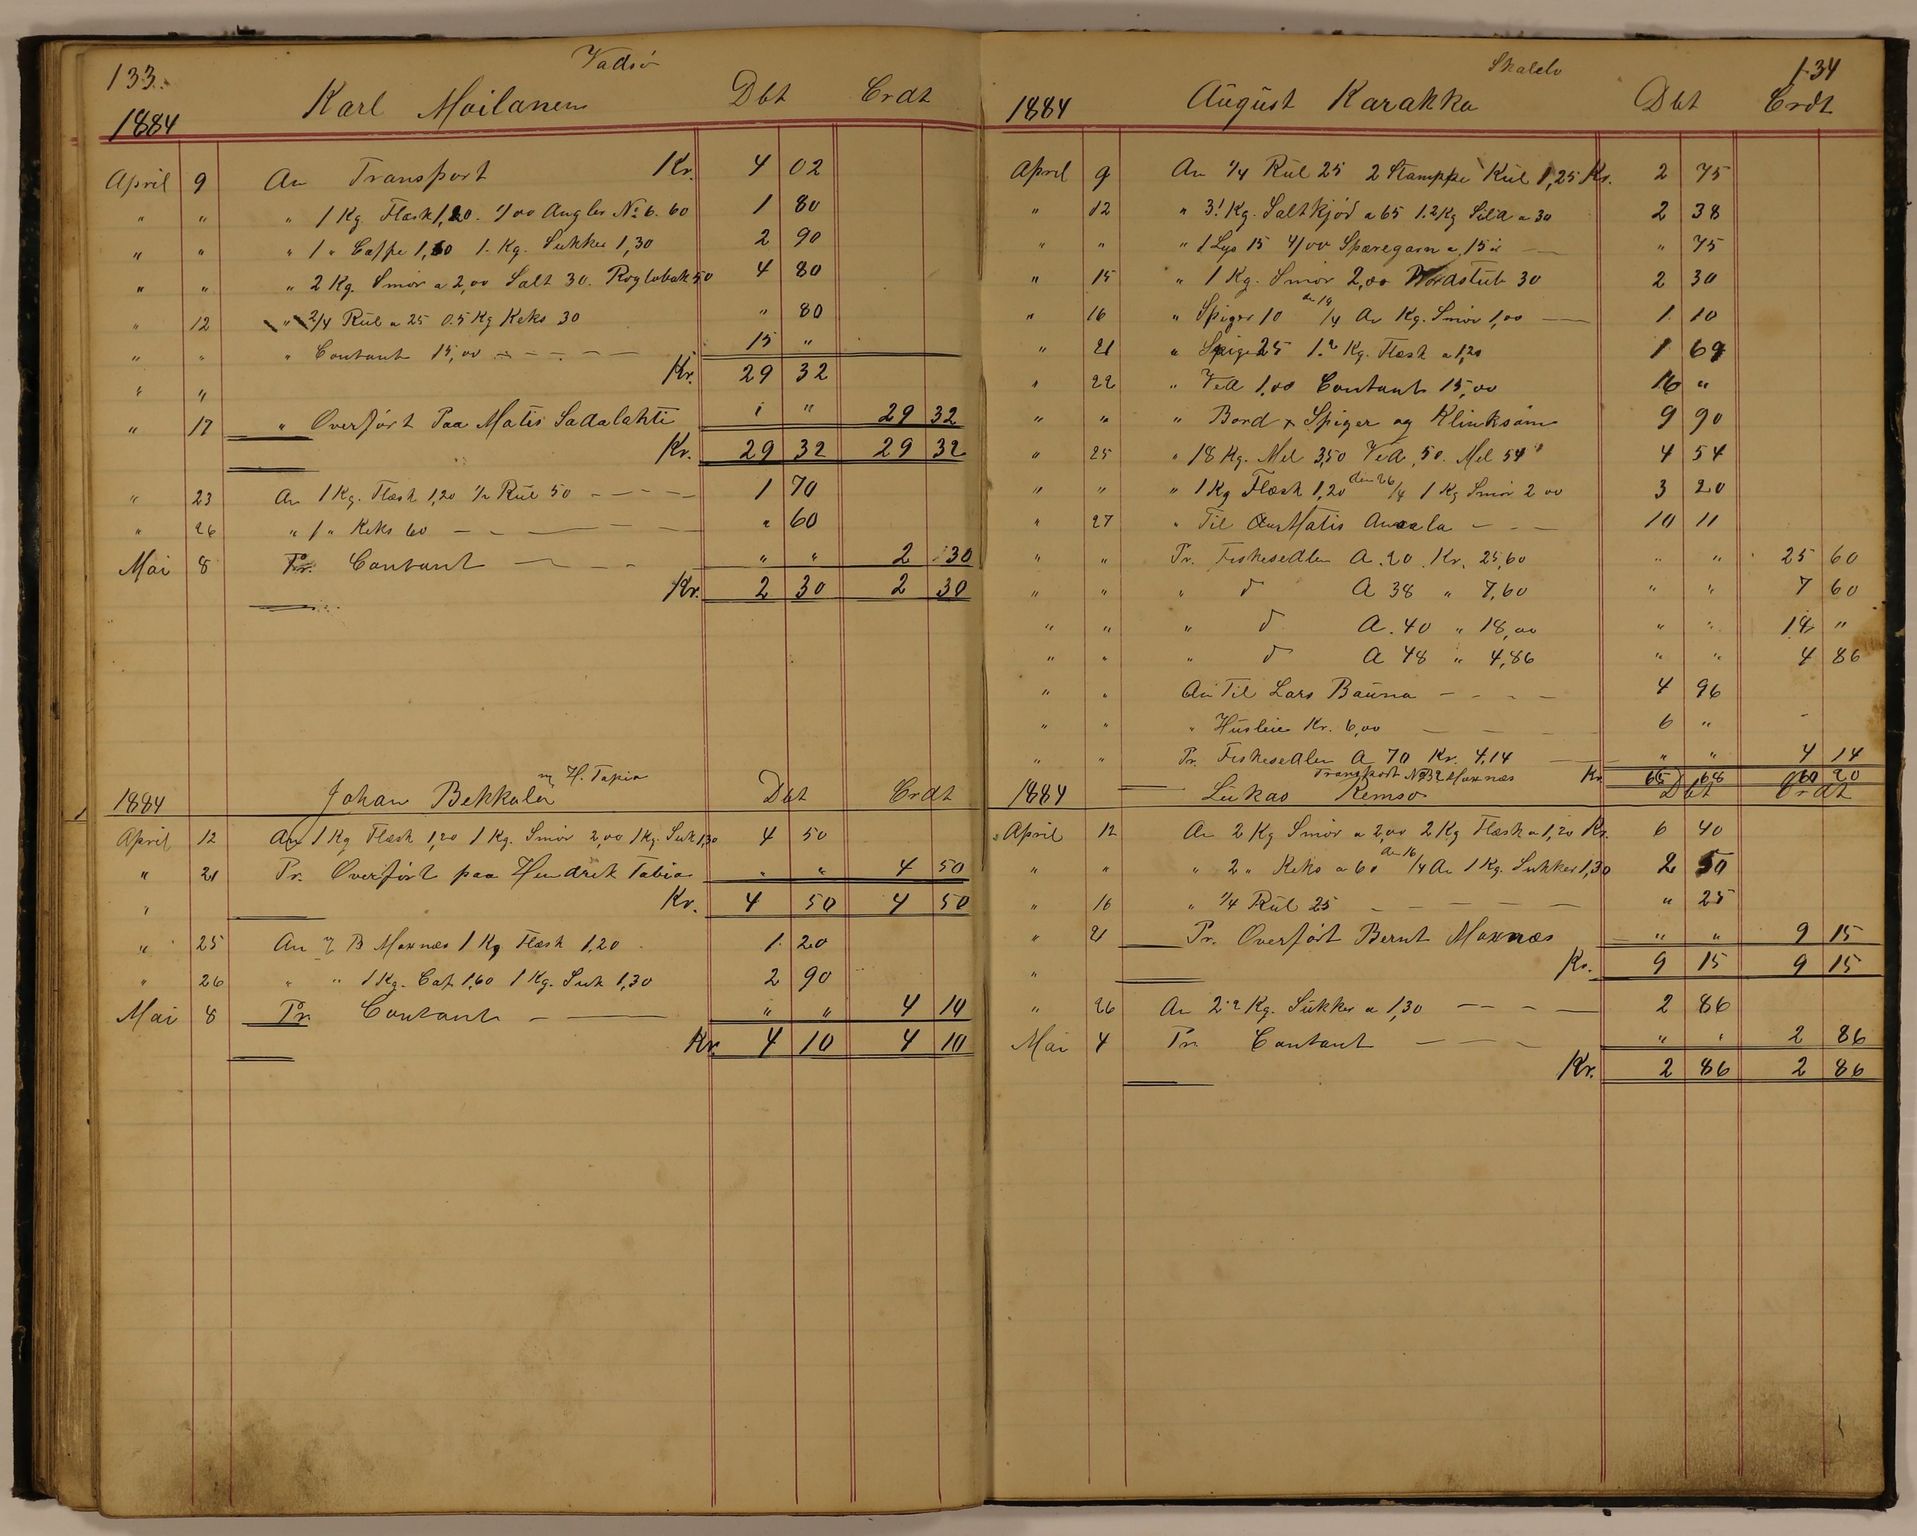 133.
Vadsö
1884 Karl Moilanen Dbt Crdt
April 9 An Transport Kr. 4 02
" " " 1 Kg Flæsk 1,20. 1/00 Angler No 6. 60 1 80
" " " 1 " Caffe 1,60 1. Kg. Sukker 1,30 2 90
" " " 2 Kg. Smör a 2,00 Salt 30. Rögtobak 50 4 80
" 12 " 2/4 Kul a 25 0.5 Kg Keks 30 " 80
" " " Contant 15,00 15 "
" " Kr. 29 32
" 17 " Overfört Paa Matis Sadalahti " " 29 32
Kr. 29 32 29 32
" 23 An 1 Kg. Flæsk 1,20 1/2 Kul 50 1 70
" 26 " 1 " Keks 60 " 60
Mai 8 Pr. Contant " " 2 30
Kr. 2 30 2 30
H. Tapia
1884 Johan Bekkala Dbt Crdt
April 12 An 1 Kg Flæsk 1,20 1 Kg. Smör 2,00 1 Kg. Suk 1,30 4 50
" 21 Pr. Overfört paa Hendrik Tabia " " 4 50
" Kr. 4 50 4 50
" 25 An B Moxnæs 1 Kg Flæsk 1,20 1 20
" 26 " " 1 Kg. Caf 1,60 1 Kg. Suk 1,30 2 90
Mai 8 Pr. Contant " " 4 10
Kr. 4 10 4 10
134
Skalelv
1884 August Karakka Dbt Crdt
April 9 An 1/4 Kul 25 2 Stamppe Kul 1,25 Kr. 2 75
" 12 " 3.1 Kg. Saltkjöd a 65 1.2 Kg Sild a 30 2 38
" " " 1 Lys 15 4/00 Spæregarn a 15 ör " 75
" 15 " 1 Kg. Smör 2,00 30 2 30
" 16 " Spiger 10 den 19/4 An Kg. Smör 1,00 1 10
" 21 " Spiger 25 1.2 Kg. Flæsk a 1,20 1 69
" 22 " Ved 1,00 Contant 15,00 16 "
" " " Bord x Spiger og Klinksöm 9 90
" 25 " 18 Kg. Mel 3,50 Ved ,50. Mel 54 4 54
" " " 1 Kg Flæsk 1,20 den 26/4 1 Kg Smör 2 00 3 20
" 27 " Til Matis 10 11
" " Pr. Fiskesedlen A. 20. Kr. 25,60 " " 25 60
" " " d A 38 " 7,60 " " 7 60
" " " d A. 40 " 18,00 " " 18 "
" " " d A 48 " 4,86 " " 4 86
" " An Til Lars Bauna 4 96
" " " Husleie Kr. 6,00 6 "
" " Pr. Fiskesedlen A 70 Kr. 4,14 " " 4 14
Transport No 32 Moxnæs Kr. 65 68 60 20
1884 Lukas Remso Dbt Crdt
April 12 An 2 Kg Smör a 2,00 2 Kg Flæsk a 1,20 Kr. 6 40
" " " 2 " Keks a 60 den 16/4 An 1 Kg. Sukker 1,30 2 50
" 16 " 1/4 Kul 25 " 25
" 21 Pr. Overfört Bernt Moxnæs " " 9 15
" Kr. 9 15 9 15
" 26 An 2.2 Kg. Sukker a 1,30 2 86
Mai 4 Pr. Contant " " 2 86
Kr. 2 86 2 86